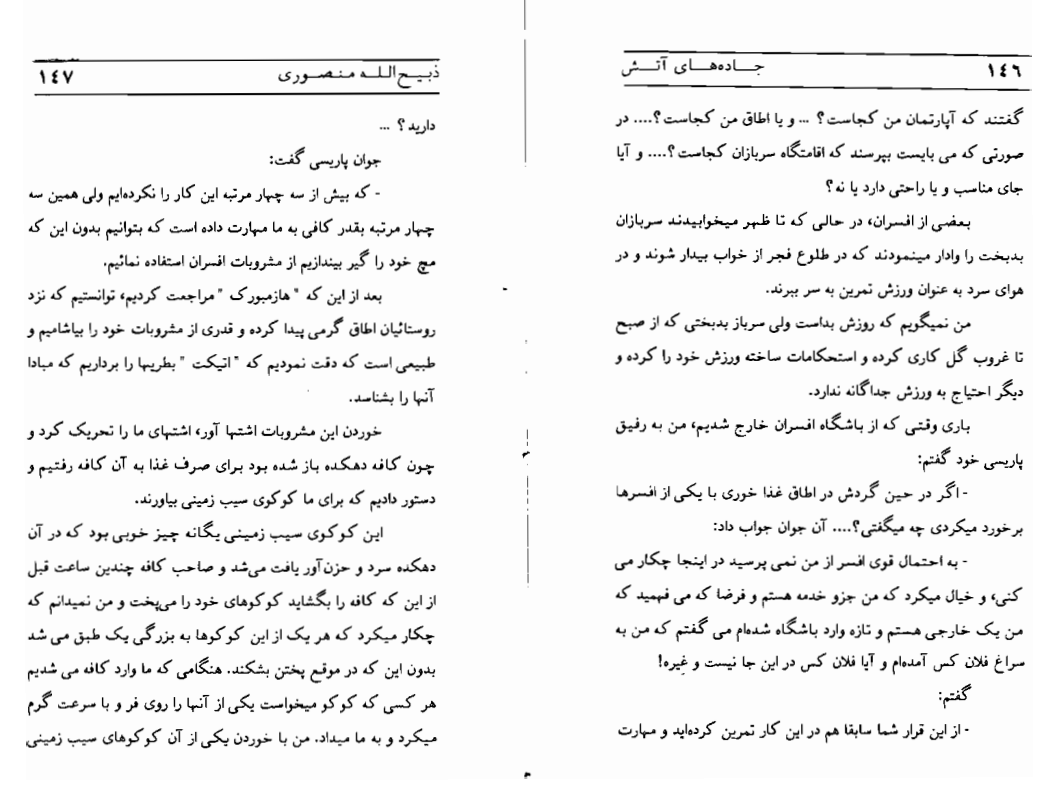 ١٤٦ جاده‌های آتش
گفتند که آپارتمان من کجاست؟ ... و یا اطاق من کجاست؟.... در
صورتی که می بایست بپرسند که اقامتگاه سربازان کجاست؟.... و آیا
جای مناسب و یا راحتی دارد یا نه؟
بعضی از افسران، در حالی که تا ظهر میخوابیدند سربازان
بدبخت را وادار مینمودند که در طلوع فجر از خواب بیدار شوند و در
هوای سرد به عنوان ورزش تمرین به سر ببرند.
من نمیگویم که روزش بداست ولی سرباز بدبختی که از صبح
تا غروب گل کاری کرده و استحکامات ساخته ورزش خود را کرده و
دیگر احتیاج به ورزش جداگانه ندارد.
باری وقتی که از باشگاه افسران خارج شدیم، من به رفیق
پاریسی خود گفتم:
- اگر در حین گردش در اطاق غذا خوری با یکی از افسرها
برخورد میکردی چه میگفتی؟.... آن جوان جواب داد:
- به احتمال قوی افسر از من نمی پرسید در اینجا چکار می
کنی، و خیال میکرد که من جزو خدمه هستم و فرضا که می فهمید که
من یک خارجی هستم و تازه وارد باشگاه شده‌ام می گفتم که من به
سراغ فلان کس آمده‌ام و آیا فلان کس در این جا نیست و غیره!
گفتم:
- از این قرار شما سابقا هم در این کار تمرین کرده‌اید و مهارت
ذبیح‌الله منصوری ١٤٧
دارید؟ ...
جوان پاریسی گفت:
- که بیش از سه چهار مرتبه این کار را نکرده‌ایم ولی همین سه
چهار مرتبه بقدر کافی به ما مهارت داده است که بتوانیم بدون این که
مچ خود را گیر بیندازیم از مشروبات افسران استفاده نمائیم.
بعد از این که "هازمبورک" مراجعت کردیم، توانستیم که نزد
روستائیان اطاق گرمی پیدا کرده و قدری از مشروبات خود را بیاشامیم و
طبیعی است که دقت نمودیم که "اتیکت" بطریها را برداریم که مبادا
آنها را بشناسد.
خوردن این مشروبات اشتها آور، اشتهای ما را تحریک کرد و
چون کافه دهکده باز شده بود برای صرف غذا به آن کافه رفتیم و
دستور دادیم که برای ما کوکوی سیب زمینی بیاورند.
این کوکوی سیب زمینی یگانه چیز خوبی بود که در آن
دهکده سرد و حزن‌آور یافت می‌شد و صاحب کافه چندین ساعت قبل
از این که کافه را بگشاید کوکوهای خود را می‌پخت و من نمیدانم که
چکار میکرد که هر یک از این کوکوها به بزرگی یک طبق می شد
بدون این که در موقع پختن بشکند. هنگامی که ما وارد کافه می شدیم
هر کسی که کوکو میخواست یکی از آنها را روی فر و با سرعت گرم
میکرد و به ما میداد. من با خوردن یکی از آن کوکوهای سیب زمینی